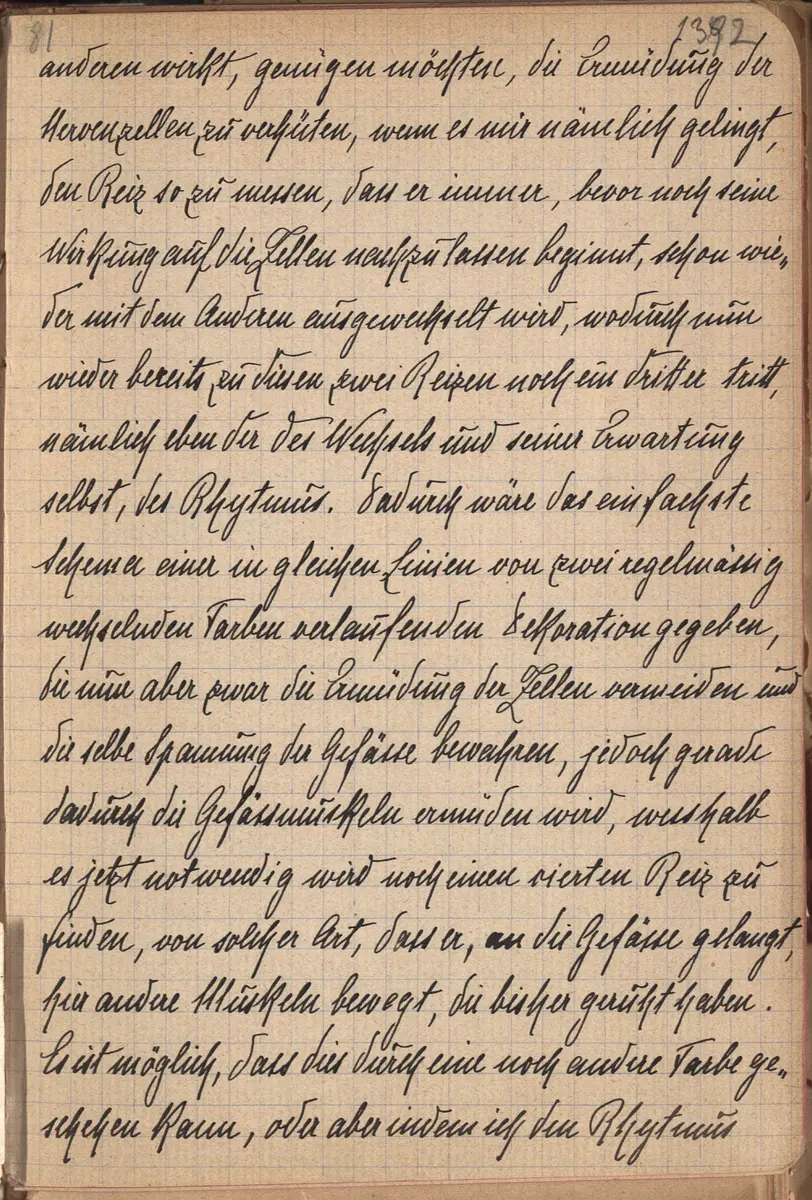 81 1392
anderen wirkt, genügen möchten, die Ermüdung der
Nervenzellen zu verhüten, wenn es mir nämlich gelingt,
den Reiz so zu messen, dass er immer, bevor noch seine
Wirkung auf die Zellen nachzulassen beginnt, schon wie„
der mit dem Anderen ausgewechselt wird, wodurch nun
wieder bereits zu diesen zwei Reizen noch ein dritter tritt,
nämlich eben der des Wechsels und seiner Erwartung
selbst, des Rhytmus. Dadurch wäre das einfachste
Schema einer in gleichen Linien von zwei regelmässig
wechselnden Farben verlaufenden Dekoration gegeben,
die nun aber zwar die Ermüdung der Zellen vermeiden und
die selbe Spannung der Gefässe bewahren, jedoch gerade
dadurch die Gefässmuskeln ermüden wird, wesshalb
es jetzt notwendig wird noch einen vierten Reiz zu
finden, von solcher Art, dass er, an die Gefässe gelangt,
hier andere Muskeln bewegt, die bisher geruht haben.
Es ist möglich, dass dies durch eine noch andere Farbe ge„
schehen kann, oder aber indem ich den Rhytmus